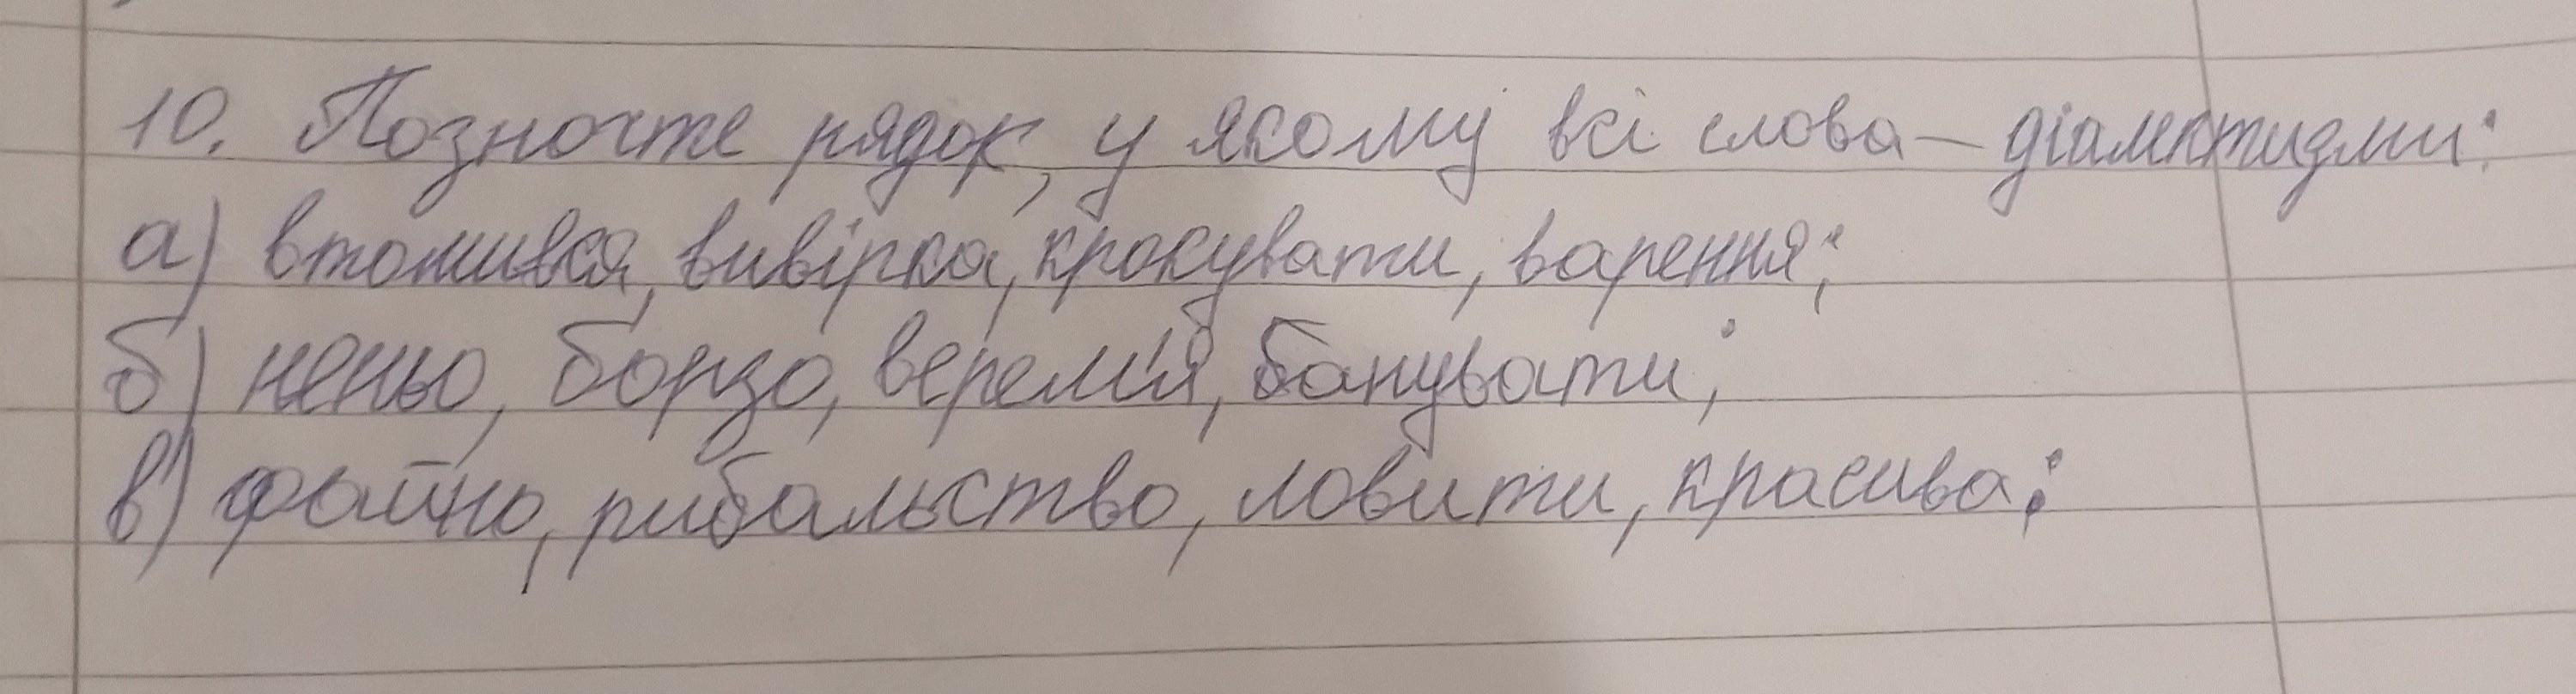 10. Позначте рядок, у якому всі слова – діалектизми:
а) втомився, вивірка, крокувати, варення;
б) неньо, борзо, веремія, банувати;
в) файно, рибальство, ловити, красива;